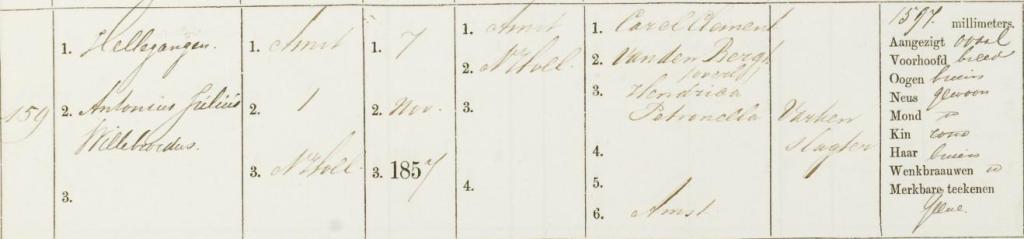 159
1. Hellegangen.
2. Antonius Julius
Willebrordus.
3.
1. Amst
2. 1
3. N Holl
1. 7
2. Nov.
3. 1857
1. Amst
2. N Holl.
3.
4.
1. Carel Clement
2. Van den Bergh
overl
3. Hendrica
Petronella
4.
5.
6. Amst.
Varken
slagter
1597. millimeters.
Aangezigt ovaal
Voorhoofd breed
Oogen bruin
Neus gewoon
Mond "
Kin rond
Haar bruin
Wenkbraauwen "
Merkbare teekenen
Geene.